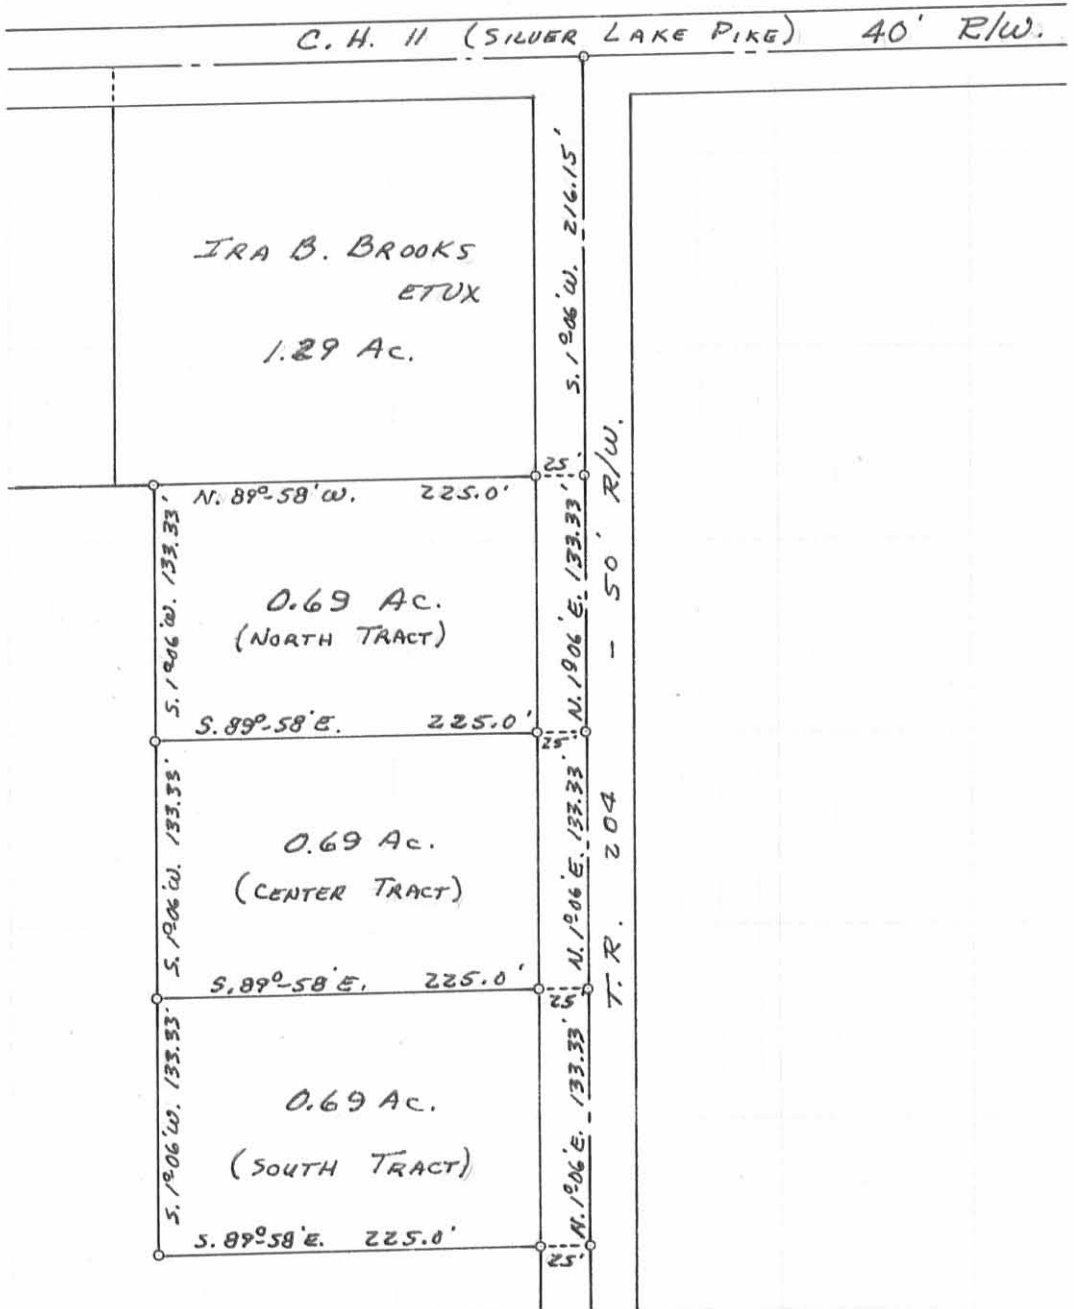 C. H. 11 (SILVER LAKE PIKE) 40' R/W.
S. 1°06'W. 216.15'
IRA B. BROOKS
ETUX
1.29 Ac.
25'
N. 89°-58'W. 225.0'
S. 1°06'W. 133.33'
0.69 Ac.
(NORTH TRACT)
N. 1°06'E. 133.33'
T. R. 204 - 50' R/W.
S. 89°-58'E. 225.0'
25'
S. 1°06'W. 133.33'
0.69 Ac.
(CENTER TRACT)
N. 1°06'E. 133.33'
S. 89°-58'E. 225.0'
25'
S. 1°06'W. 133.33'
0.69 Ac.
(SOUTH TRACT)
N. 1°06'E. 133.33'
S. 89°58'E. 225.0'
25'